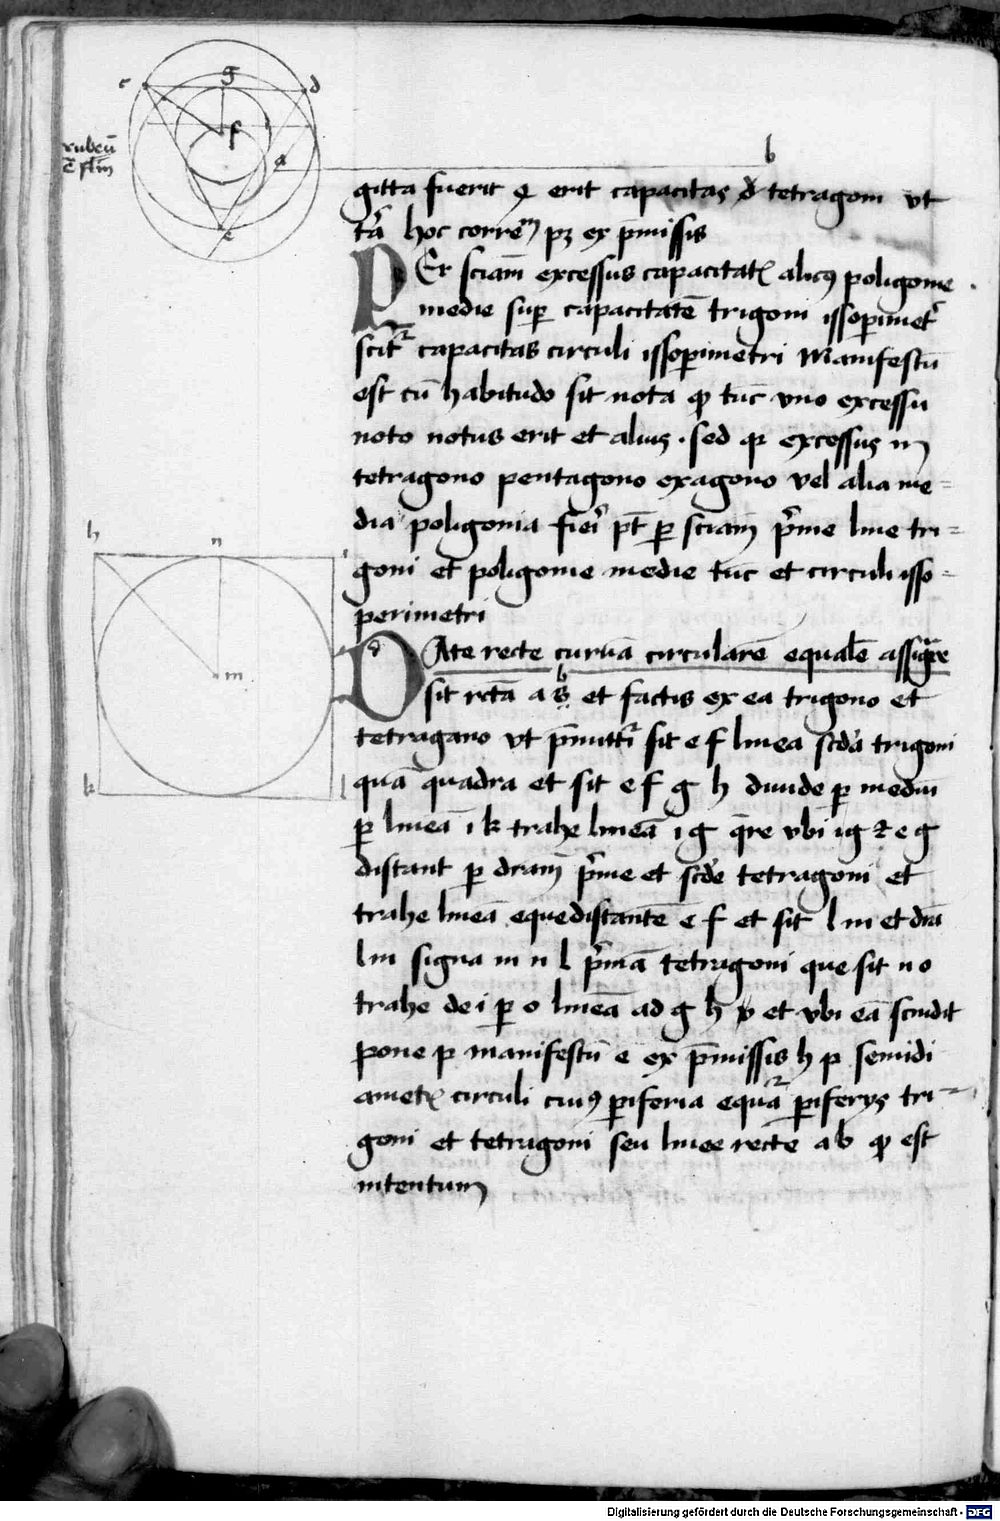 c g d
f
rubeū
ē flm̄
a
e
b
gitta fuerit q erit capacitas tetragoni vt
tā hoc corre᷑m pꝫ ex p̄missis
PEr sciam̄ excessus capacitat alicꝰ poligonie
medie suꝑ capacitatē trigoni issoꝑimet͛
scit͛ capacitas circuli issoꝑimetri Manifestū
est cū habitudo sit nota ꝙ tūc vno excessu
noto notus erit et alius. sed qꝛ excessus in
tetragono pentagono exagono vel alia me=
dia poligonia fieri pt̄ ꝑ sciam̄ p͛me line tri=
goni et poligonie medie tūc et circuli isso=
perimetri
h n i
m
k l
DAte recte curuā circularē equalē assignare
sit rctā a b et factis ex ea trigono et
tetragano vt p̄mittit͛ sit e f linea scdā trigoni
quā quadra et sit e f g h diuide ꝑ mediū
ꝑ lineā i k trahe lineā i g qre vbi ig ⁊ e g
distant ꝑ dram̄ p͛me et scde tetragoni et
trahe lineā equedistantē e f et sit l m et drā
l m signa in n l p͛mā tetrigoni que sit n o
trahe de i ꝑ o lineā ad g h et vbi eā scindit
pone p manifestū e ex p̄missis h p semidi
amet circuli cuiꝰ ꝑiferia equat͛ ꝑiferijs tri=
goni et tetrigoni seu linee recte a b ꝙ est
intentum
Digitalisierung gefördert durch die Deutsche Forschungsgemeinschaft - DFG